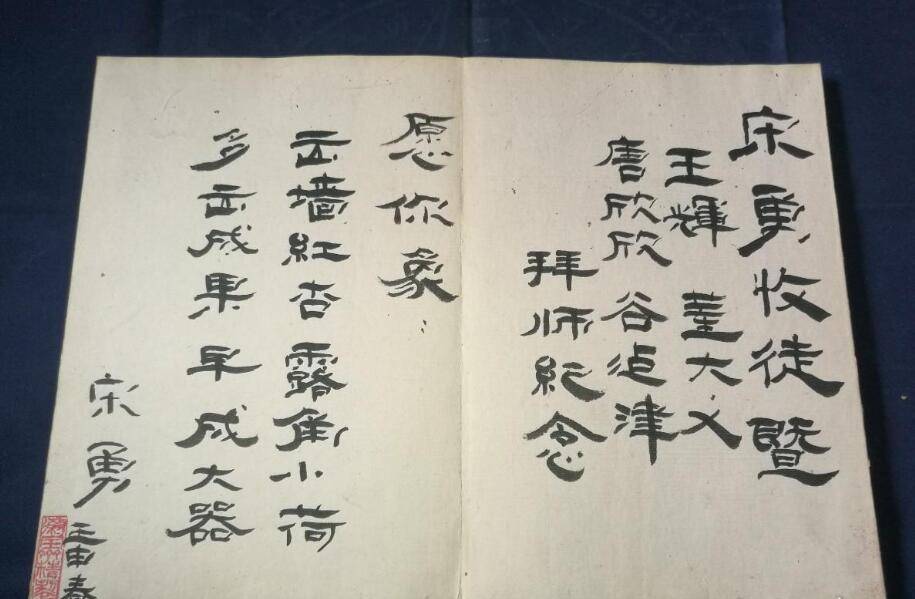 宋勇收徒暨
王輝 董大义
唐欣欣 谷 津
拜师紀念
愿你象：
出墙紅杏 露角小荷
多出成果 早成大器
宋勇
壬申春